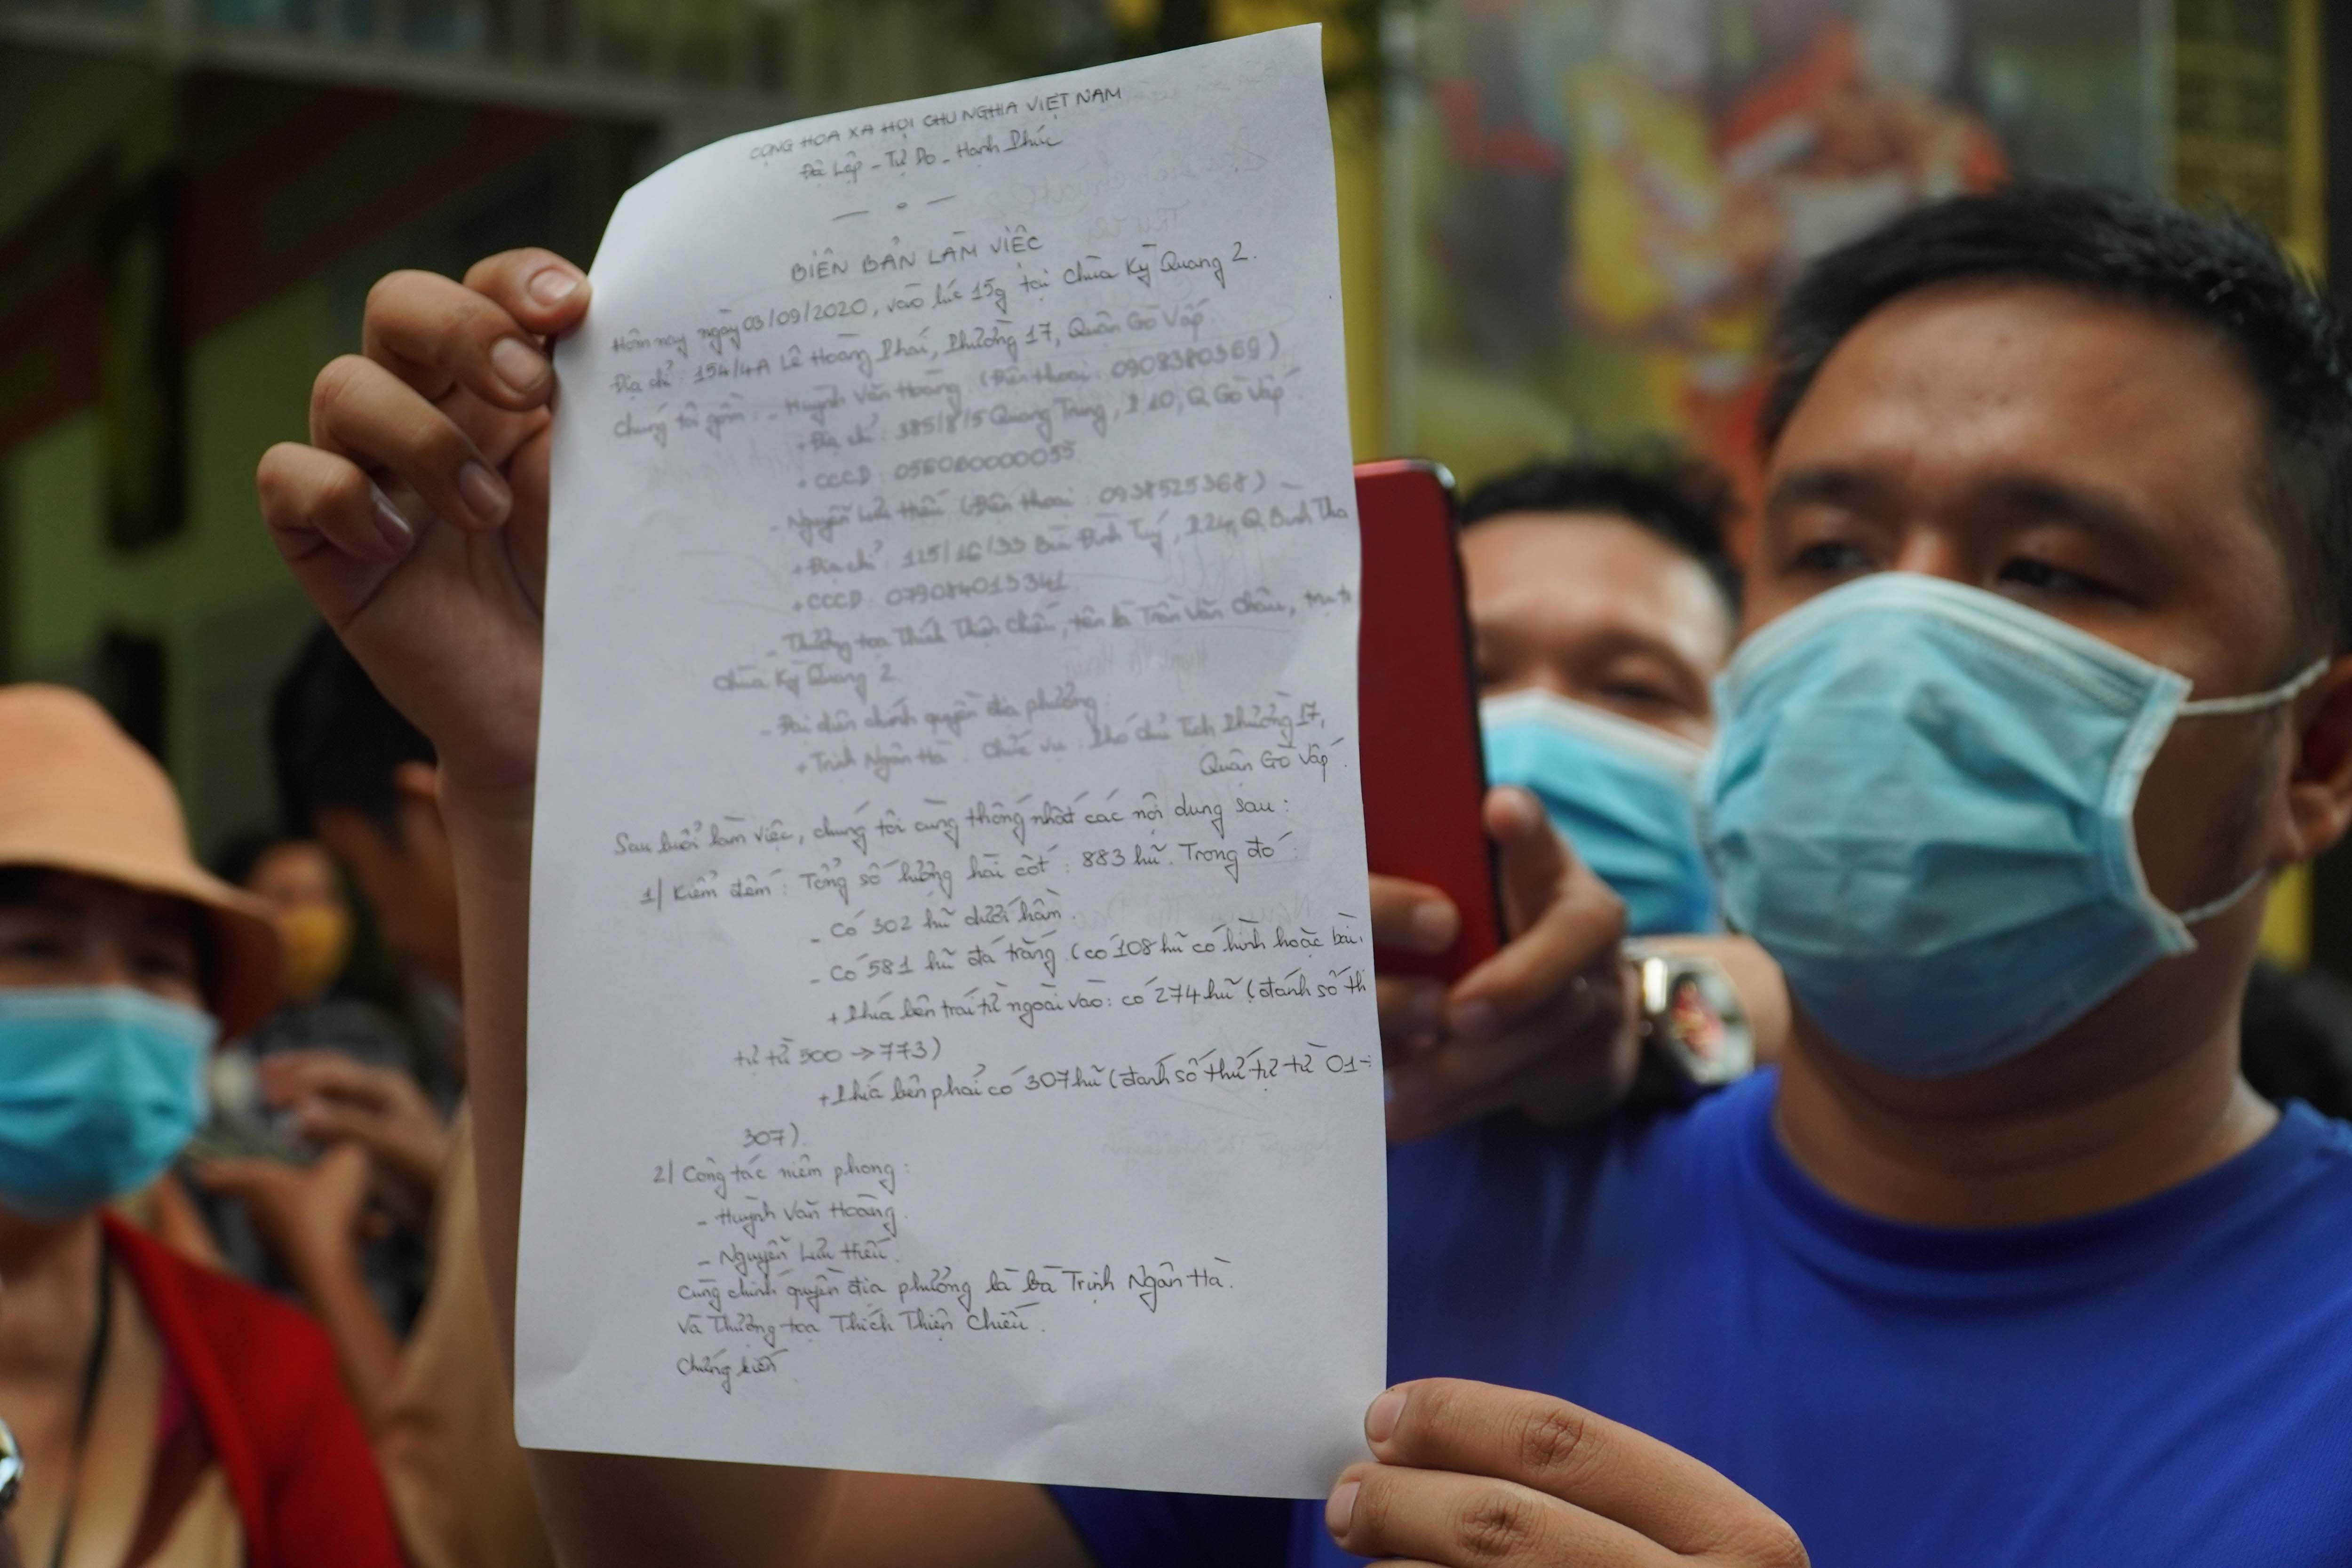 CỘNG HOA XA HỘI CHU NGHIA VIỆT NAM
Độ Lập - Tự Do - Hạnh Phúc
BIÊN BẢN LÀM VIÊC
Hôm nay ngày 03/09/2020, vào lúc 15g tại Chùa Kỳ Quang 2.
Địa chỉ: 154/4A Lê Hoàng Phái, Phường 17, Quận Gò Vấp.
Chúng tôi gồm: - Huỳnh Văn Hoàng (Điện thoại: 0908380369)
+ Địa chỉ: 385/8/5 Quang Trung, P 10, Q Gò Vấp.
+ CCCD: 056080000055
- Nguyễn Lưu Hiếu (Điện thoại: 0938525368)
+ Địa chỉ: 115/16/33 Bùi Đình Tuý, P 24, Q Bình Thạ
+ CCCD: 079084015341
- Thượng toạ Thích Thiện Chiếu, tên là Trần Văn Châu,
Chùa Kỳ Quang 2.
- Đại diện chính quyền địa phương:
+ Trịnh Ngân Hà. Chức vụ: Phó chủ Tịch Phường 17,
Quận Gò Vấp.
Sau buổi làm việc, chúng tôi cùng thống nhất các nội dung sau:
1/ Kiểm đếm: Tổng số lượng hài cốt: 883 hũ. Trong đó:
- Có 302 hũ dưới hầm.
- Có 581 hũ đá trắng (có 108 hũ có hình hoặc bài
+ Phía bên trái từ ngoài vào: có 274 hũ (đánh số th
tự từ 500 → 773)
+ Phía bên phải có 307 hũ (đánh số thứ tự từ 01 →
307).
2/ Công tác niêm phong:
- Huỳnh Văn Hoàng.
- Nguyễn Lưu Hiếu.
Cùng chính quyền địa phương là bà Trịnh Ngân Hà.
Và Thượng toạ Thích Thiện Chiếu.
Chứng kiến